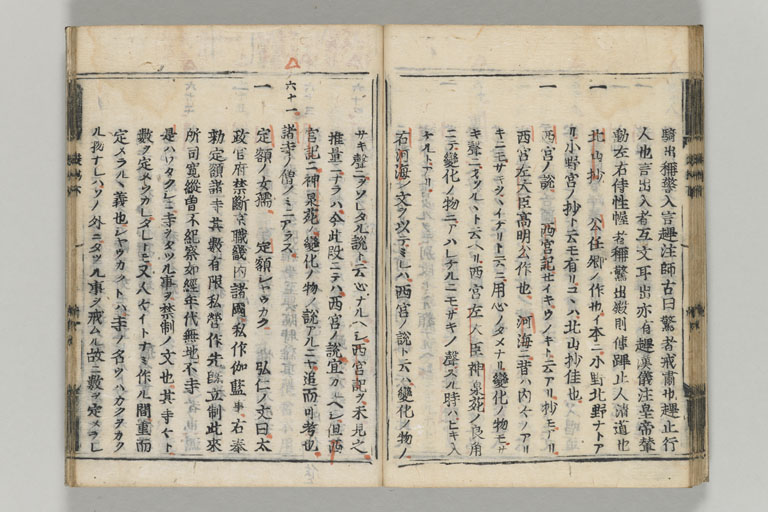 騎出稱警入言趨注師古曰警者戒肅也趨止行
人也言出入者互文耳出亦有趨漢儀注皇帝輦
動左右侍帷幄者稱警出殿則傳蹕止人清道也
一 北山抄 公任卿ノ作也イ本ニ小野北野ナトア
リ小野宮ノ抄ト云モ有リコヽハ北山抄佳也
一 西宮ノ説 西宮記セイキウノキト云アリ抄モアリ
西宮左大臣高明公作也 河海ニ昔ハ内ヤツアリ
キニモサマツヘイナリト云ニ用心ノタメナリ變化ノ物モサ
キ聲ニヲツルヽト云ヘリ西宮左大臣神泉苑ノ良角
ニテ變化ノ物ニアハレケルニモサキノ聲スル時ハヒキ入
ケルトアリ
右河海ノ文ヲ以テミレハ西宮ノ説ト云ハ變化ノ物ノ
サキ聲ニヲツレタル説ト云心ナルヘシ西宮記ヲ未見之
推量ニテラハ今此段ニテハ西宮ノ説宜カルヘシ但西
宮記ニ神泉苑ノ變化ノ物ノ説アルニヤ追而可考也
六十一 諸寺ノ僧ノミニアラス
一 定額ノ女孺 定額シヤウカク 弘仁ノ文曰太
政官府禁斷京職畿内諸國私作伽藍事右奉
勅定額諸寺其數有限私營作先既立制此來
所司寛縱曽不糺察如經年代無地不寺
是ハワタクシニ寺ヲタツル事ヲ禁制ノ文也其寺イト
數ヲ定メラカレタレトモ又人ヤイトナミ作ル間重而
定メラルヽ義也シヤウカクトハ寺ノ名ヅハカクタカク
ル物ナレハソノ外ニタツル事ヲ戒ムル故ニ數ヲ定メラレ